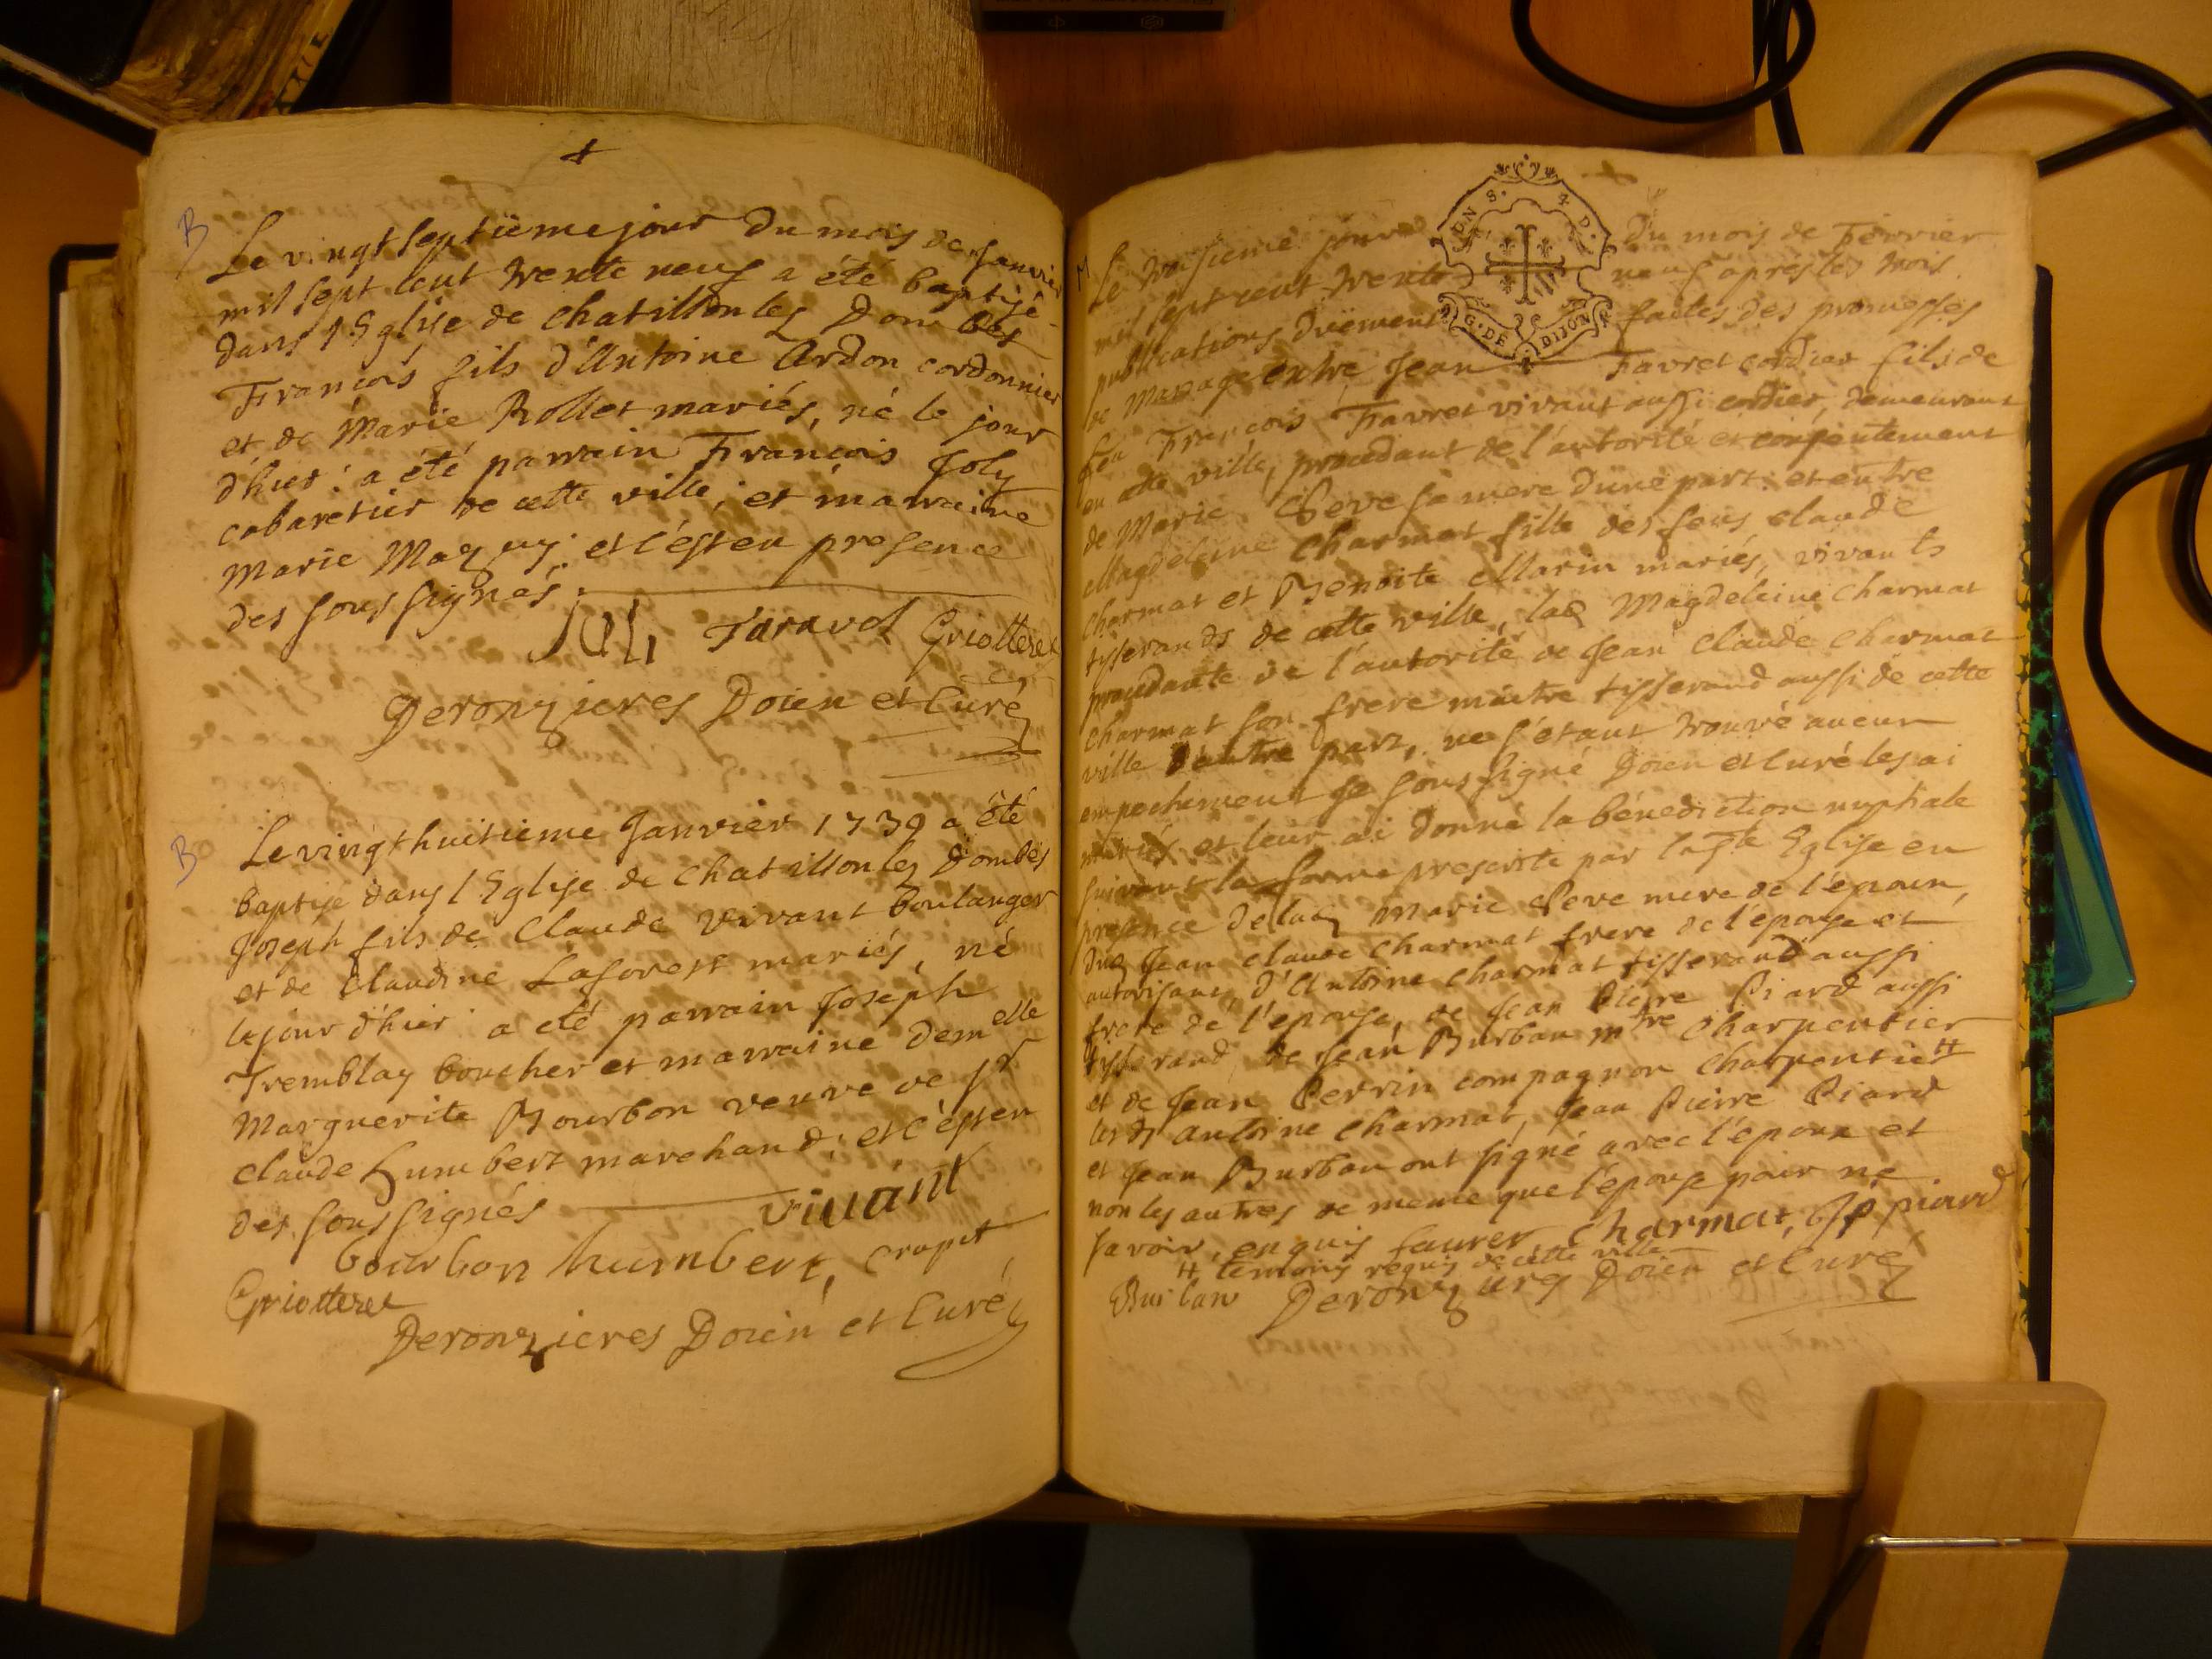 B
Le vingt septième jour du mois de Janvier
mil sept cent trente neuf a été baptisé
dans l'Eglise de chatillon les Dombes
François fils d'Antoine Ardon cordonnier
et de Marie Rollet mariés, né le jour
d'hier : a été parrain François Joly
cabaretier de cette ville ; et marraine
Marie ; et c'est en presence
des soussignés.
Joli Taravel Griotteret
Deronzieres Doien et Curé
B
Le vingt huitieme Janvier 1739 a été
baptisé dans l'Eglise de chatillon les Dombes
Joseph fils de Claude Vivant boulanger
et de Claudine Laforest mariés, né
le jour d'hier : a été parrain Joseph
Tremblay boucher et marraine demelle
Marguerite Bourbon veuve de sr
claude humbert marchand ; et c'est en
des soussignés vivant
bourbon humbert, crapet
Griotteret
Deronzieres Doien et Curé
M
Le troisieme jour du mois de Fevrier
mil sept cent trente neuf après les trois
publications duëment faites des promesses
de mariage entre Jean Favret cordier fils de
feu François Favret vivant aussi cordier, demeurant
en cette ville, procedant de l'autorité et consentement
de Marie Seve sa mere d'une part : et entre
Magdeleine Charmat fille des feus claude
charmat et Benoite Marin mariés, vivants
tisserands de cette ville, lad Magdeleine Charmat
procedante de l'autorité de Jean Claude Charmat
charmat son frere maitre tisserand aussi de cette
ville d'autre part, ne s'étant trouvé aucun
empechement Je soussigné Doien et Curé les ai
mariés et leur ai donné la bénediction nuptiale
suivant la forme prescrite par la Ste Eglise en
presence de lad Marie Seve mere de l'epoux,
dud Jean claude Charmat frere de l'épouse et
autorisant, d'Antoine charmat tisserand aussi
frere de l'epouse, de Jean Pierre Piard aussi
tisserand, de Jean Burban mtre charpentier
et de Jean Perrin compagnon charpentier #
lesd Antoine Charmat, Jean Pierre Piard
et Jean Burban ont signé avec l'époux et
non les autres de meme que l'épouse pour ne
savoir, enquis favret, Charmat, JP piard
# temoins requis de cette ville
Burban Deronzieres Doien et Curé
GEN DE DIJON